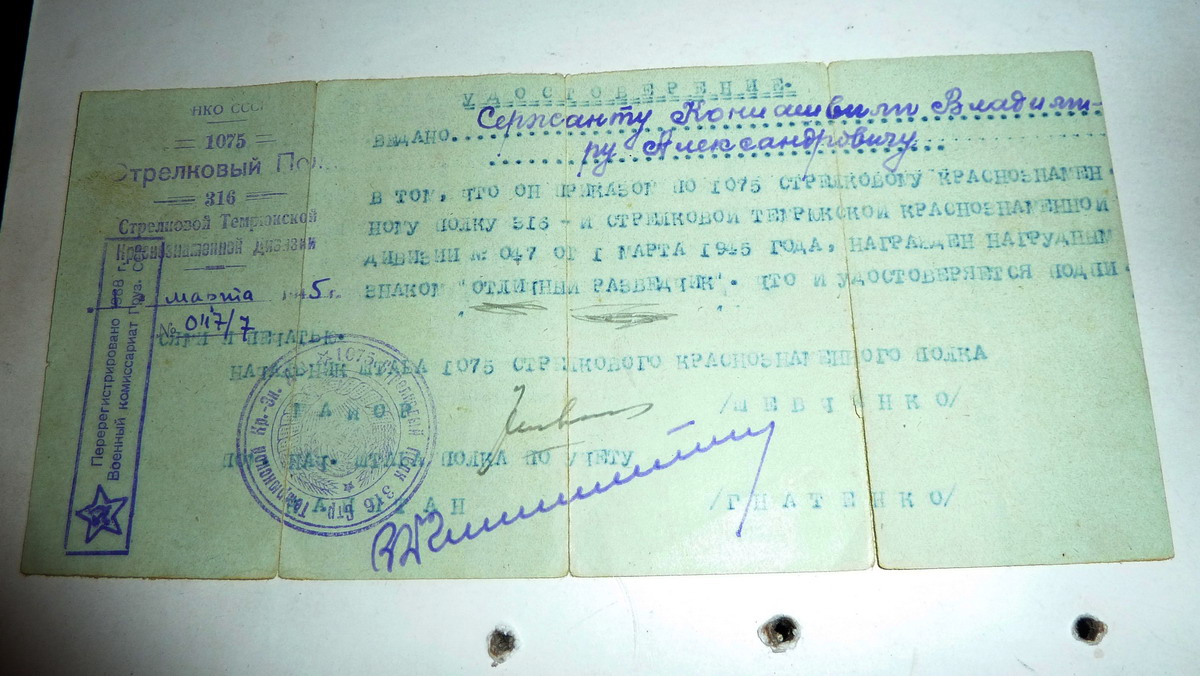 НКО СССР
1075
Стрелковый По
316
Стрелковой Темрюкской
Краснознаменной Дивизии
марта 1945 г.
№ 047/7
УДОСТОВЕРЕНИЕ.
ВЫДАНО Сержанту Кониашвили Владими-
ру Александровичу
В ТОМ, ЧТО ОН ПРИКАЗОМ ПО 1075 СТРЕЛКОВОМУ КРАСНОЗНАМЕН-
НОМУ ПОЛКУ 316 - Й СТРЕЛКОВОЙ ТЕМРЮКСКОЙ КРАСНОЗНАМЕННОЙ
ДИВИЗИИ № 047 ОТ 1 МАРТА 1945 ГОДА, НАГРАЖДЕН НАГРУДНЫМ
ЗНАКОМ "ОТЛИЧНЫЙ РАЗВЕДЧИК". ЧТО И УДОСТОВЕРЯЕТСЯ ПОДПИ-
СЯМИ И ПЕЧАТЬЮ.
НАЧАЛЬНИК ШТАБА 1075 СТРЕЛКОВОГО КРАСНОЗНАМЕННОГО ПОЛКА
МАЙОР /ШЕВЧЕНКО/
ПОМ. НАЧ. ШТАБА ПОЛКА ПО УЧЕТУ
КАПИТАН /ГНАТЕНКО/
Перерегистрировано 1968 г.
Военный комиссариат Груз. ССР
1075 Стрелковый полк 316 Стр. Темрюкской Кр.-Зн.